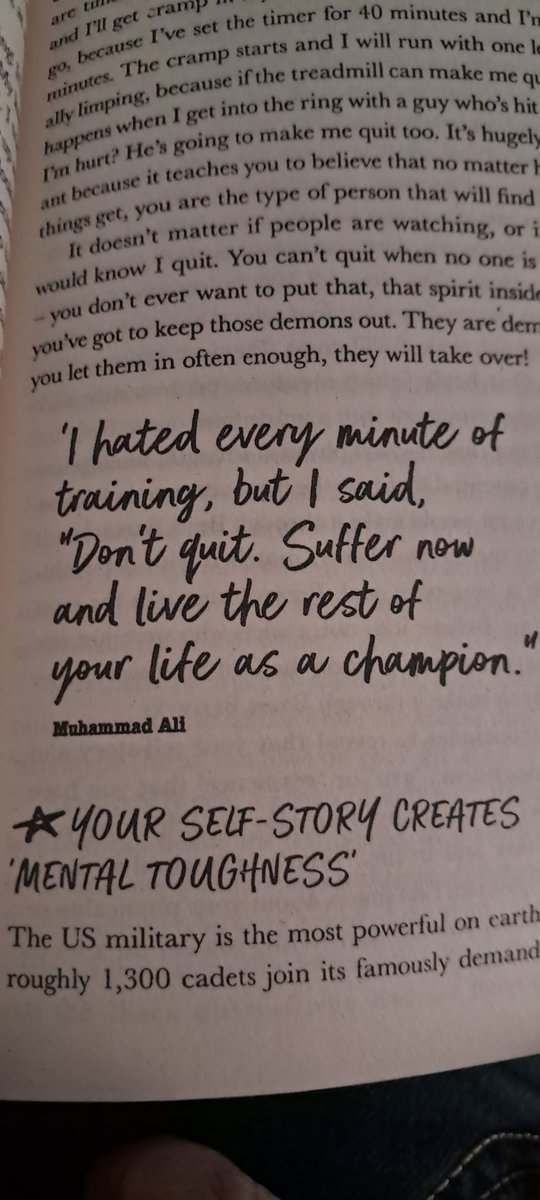 and I'll get cramp in
go, because I've set the timer for 40 minutes and I'm
minutes. The cramp starts and I will run with one
ally limping, because if the treadmill can make me
happens when I get into the ring with a guy who's hit
I'm hurt? He's going to make me quit too. It's hugely
ant because it teaches you to believe that no matter
things get, you are the type of person that will find
It doesn't matter if people are watching, or
would know I quit. You can't quit when no one is
– you don't ever want to put that, that spirit
you've got to keep those demons out. They are
you let them in often enough, they will take over!
'I hated every minute of
training, but I said,
"Don't quit. Suffer now
and live the rest of
your life as a champion."
Muhammad Ali
YOUR SELF-STORY CREATES
'MENTAL TOUGHNESS'
The US military is the most powerful on earth
roughly 1,300 cadets join its famously